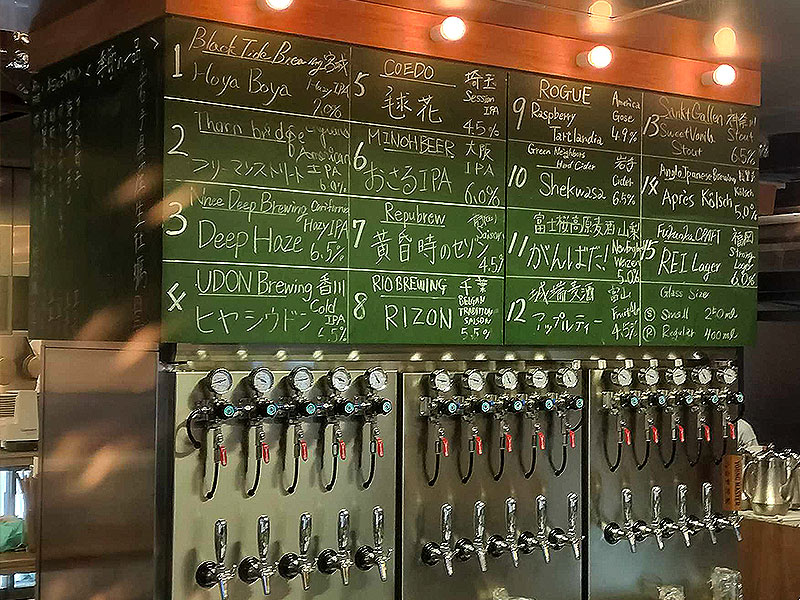 1
Black Tide Brewing 宮城
Hoya Boya
Hazy IPA
7.0%
2
Thornbridge
American
フリーマンストリートIPA
6.0%
3
Knee Deep Brewing California
Deep Haze
Hazy IPA
6.5%
4
UDON Brewing 香川
ヒヤシウドン
Cold
IPA
5
COEDO 埼玉
毬花
Session
IPA
4.5%
6
MINOH BEER 大阪
おさるIPA
IPA
6.0%
7
Repubrew 静岡
黄昏時のセゾン
Saison
4.5%
8
RIO BREWING 千葉
RIZON
BELGIAN
TRADITION
SAISON
5.5%
9
ROGUE America
Raspberry
Tartlandia
Gose
4.9%
10
Green Neighbors
Hard Cider 岩手
Shekwasa
Cider
6.5%
11
富士桜高原麦酒 山梨
がんばだ!
Weizen
5.0%
12
城端麦酒 富山
アップルティー
4.5%
13
Sankt Gallen
Sweet Vanilla
Stout
Stout
6.5%
14
Anglo Japanese Brewing
Après Kölsch
Kölsch
5.0%
15
Fukuoka CRAFT 福岡
REI Lager
Strong
Lager
6.0%
Glass Size
Ⓢ Small 250ml
Ⓡ Regular 400ml
YOUNG MASTER